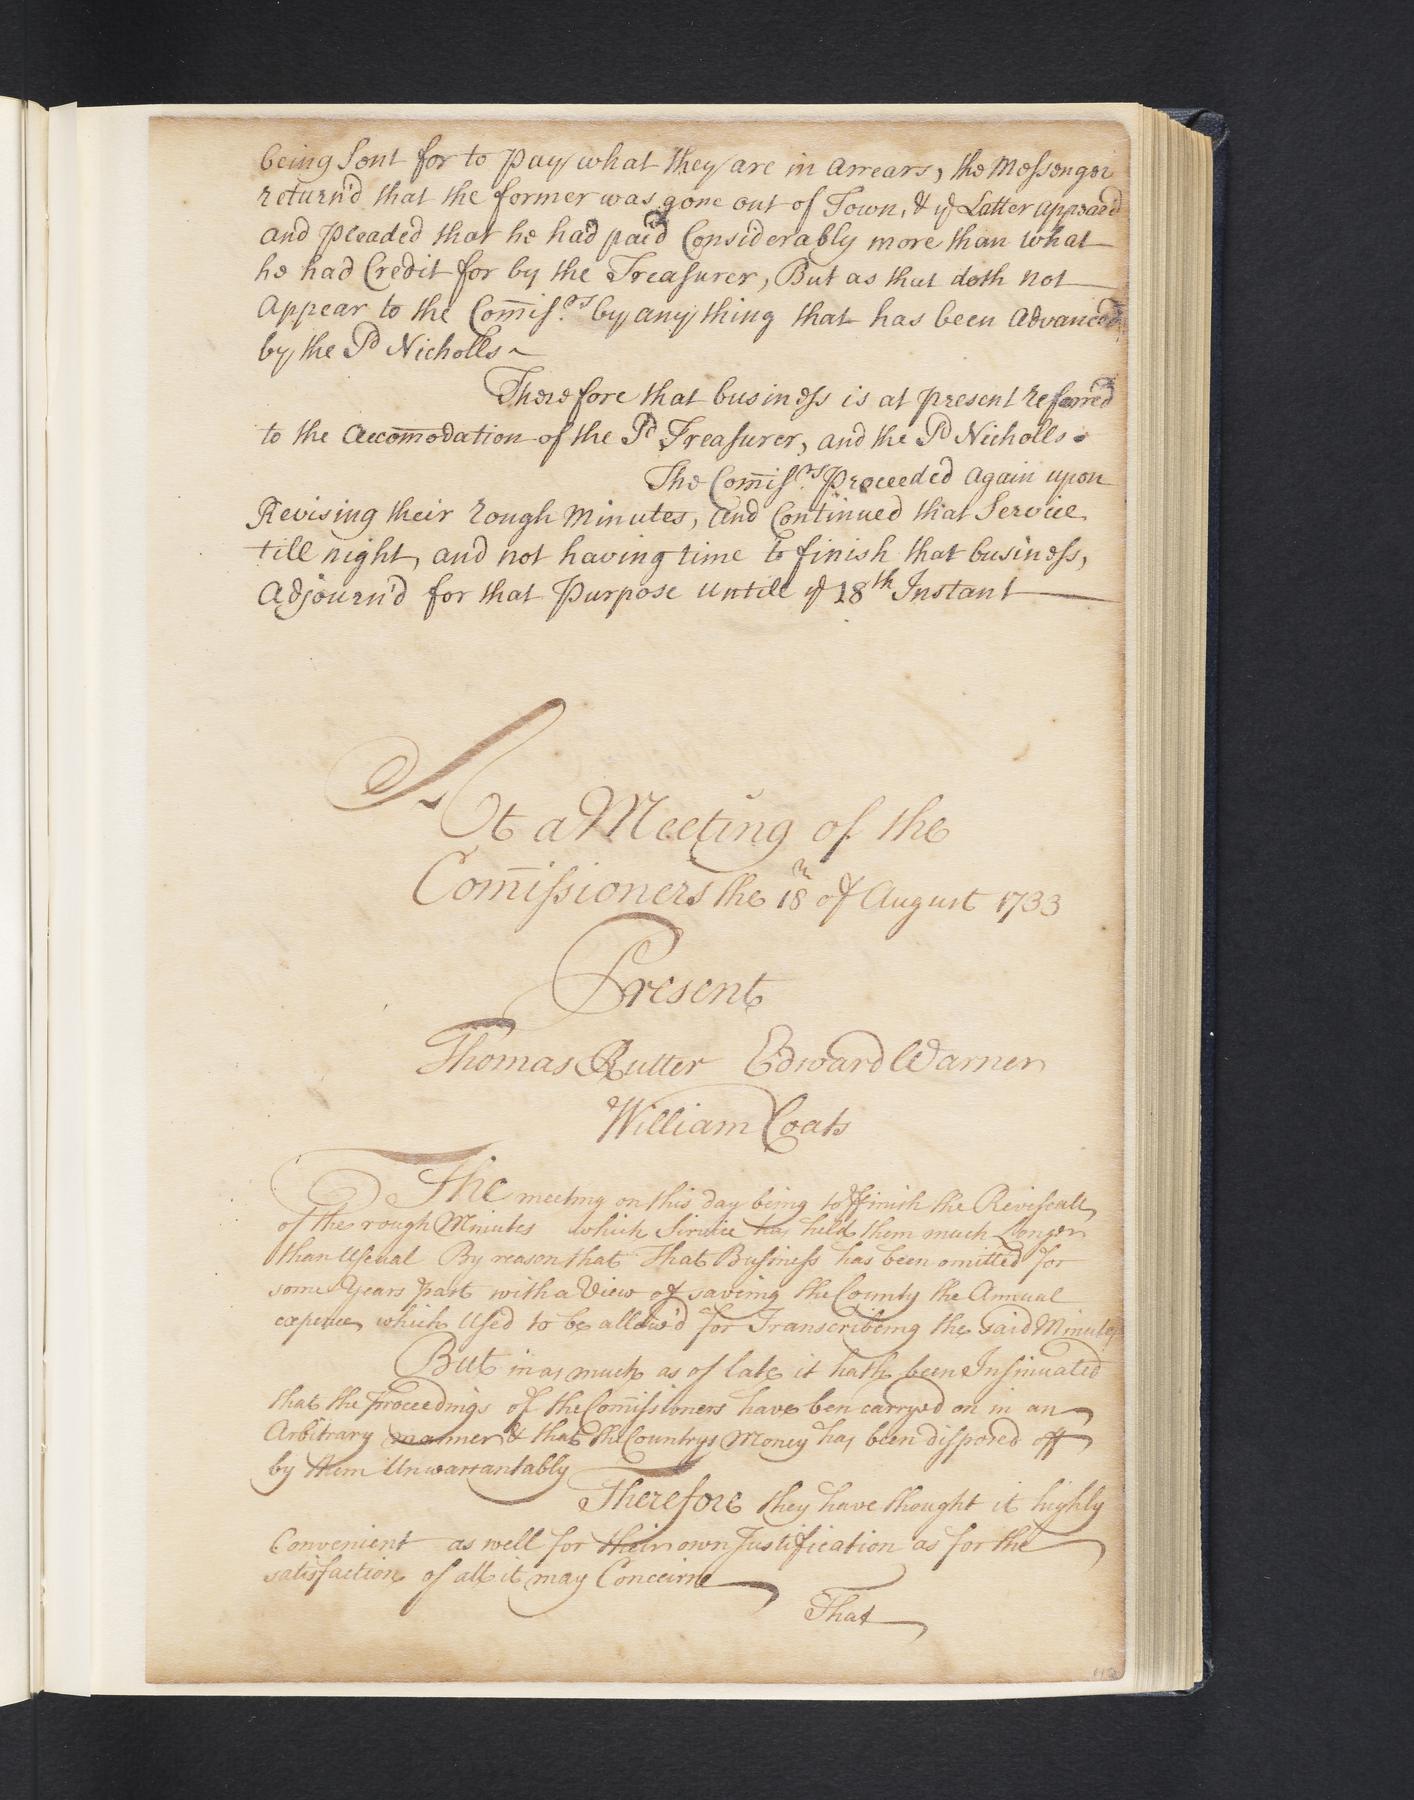 being Sent for to Pay what they are in Arrears, the Messenger
return'd that the former was gone out of Town, & ye Latter appeard
and pleaded that he had paid Considerably more than what
he had Credit for by the Treasurer, But as that doth not
Appear to the Com̄is:rs by any thing that has been Advanced
by the Sd Nicholls ~
Therefore that business is at present referred
to the Accom̄odation of the Sd Treasurer, and the Sd Nicholls.
The Com̄is:rs Proceeded Again upon
Revising their rough Minutes, and Continued that Service
till night, and not having time to finish that business,
Adjourn'd for that Purpose untill ye 18th Instant
At a Meeting of the
Com̄issioners the 18th of August 1733
Present
Thomas Rutter Edward Warner
William Coats
The meeting on this day being to ffinish the Reviseall
of the rough Minutes which Service has held them much Longer
than Useual By reason that that Business has been omitted for
some Years past with a View of saveing the County the Annual
expence which Used to be allow'd for Transcribeing the said Minutes
But in as much as of late it hath been Insinuated
that the Proceedings of the Com̄issioners have ben carryed on in an
Arbitrary manner & that the Countrys Money has been disposed off
by them Unwarrantably
Therefore they have thought it highly
Convenient as well for their own Justification as for the
satisfaction of all it may Concerne
That